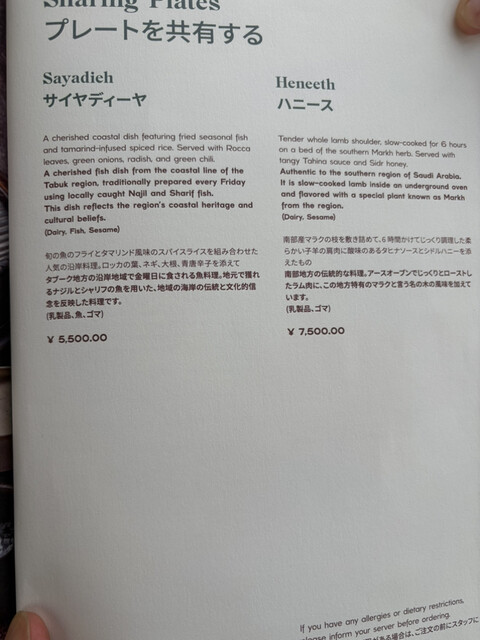 Sharing Plates
プレートを共有する
Sayadieh
サイヤディーヤ
A cherished coastal dish featuring fried seasonal fish
and tamarind-infused spiced rice. Served with Rocca
leaves, green onions, radish, and green chili.
A cherished fish dish from the coastal line of the
Tabuk region, traditionally prepared every Friday
using locally caught Najil and Sharif fish.
This dish reflects the region's coastal heritage and
cultural beliefs.
(Dairy, Fish, Sesame)
旬の魚のフライとタマリンド風味のスパイスライスを組み合わせた
人気の沿岸料理。ロッカの葉、ネギ、大根、青唐辛子を添えて
タブーク地方の沿岸地域で金曜日に食される魚料理。地元で獲れ
るナジルとシャリフの魚を用いた、地域の海岸の伝統と文化的信
念を反映した料理です。
(乳製品、魚、ゴマ)
¥ 5,500.00
Heneeth
ハニース
Tender whole lamb shoulder, slow-cooked for 6 hours
on a bed of the southern Markh herb. Served with
tangy Tahina sauce and Sidr honey.
Authentic to the southern region of Saudi Arabia.
It is slow-cooked lamb inside an underground oven
and flavored with a special plant known as Markh
from the region.
(Dairy, Sesame)
南部産マラクの枝を敷き詰めて、6時間かけてじっくり調理した柔
らかい子羊の肩肉に酸味のあるタヒナソースとシドルハニーを添
えたもの
南部地方の伝統的な料理。アースオーブンでじっくりとロースト
したラム肉に、この地方特有のマラクと言う名の木の風味を加えて
います。
(乳製品、ゴマ)
¥ 7,500.00
If you have any allergies or dietary restrictions,
please inform your server before ordering.
がある場合は、ご注文の前にスタッフに